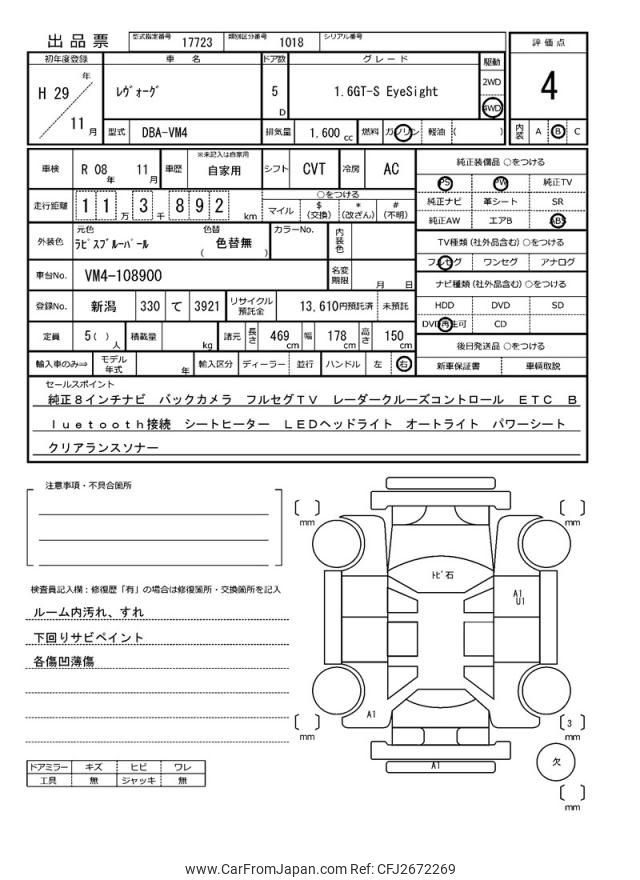 出品票 型式指定番号 17723 類別区分番号 1018 シリアル番号
初年度登録 車 名 ドア数 グレード 駆動 評価点
H 29 年 11 月 レヴォーグ 5 D 1.6GT-S EyeSight 2WD 4WD 4
型式 DBA-VM4 排気量 1,600 cc 燃料 ガソリン 軽油 ( ) 内装 A B C
車検 R 08 年 11 月 車歴 ※未記入は自家用 自家用 シフト CVT 冷房 AC
走行距離 1 1 万 3 千 8 9 2 km ○をつける マイル $ (交換) * (改ざん) # (不明)
外装色 元色 ラピスブルーパール 色替 ( 色替無 ) カラーNo. 内装色
車台No. VM4-108900 名変期限 月 日
登録No. 新潟 330 て 3921 リサイクル預託金 13,610円預託済 未預託
定員 5 ( ) 人 積載量 kg 諸元 長さ 469 cm 幅 178 cm 高さ 150 cm
輸入車のみ⇒ モデル年式 年 輸入区分 ディーラー 並行 ハンドル 左 右
純正装備品 ○をつける
PS PW 純正TV
純正ナビ 革シート SR
純正AW エアB ABS
TV種類 (社外品含む) ○をつける
フルセグ ワンセグ アナログ
ナビ種類 (社外品含む) ○をつける
HDD DVD SD
DVD再生可 CD
後日発送品 ○をつける
新車保証書 車輌取説
セールスポイント
純正８インチナビ バックカメラ フルセグＴＶ レーダークルーズコントロール ＥＴＣ Ｂ
ｌｕｅｔｏｏｔｈ接続 シートヒーター ＬＥＤヘッドライト オートライト パワーシート
クリアランスソナー
注意事項・不具合箇所
検査員記入欄：修復歴「有」の場合は修復箇所・交換箇所を記入
ルーム内汚れ、すれ
下回りサビペイント
各傷凹薄傷
ドアミラー キズ ヒビ ワレ
工具 無 ジャッキ 無
[ ] mm [ ] mm
トビ石
A1
U1
A1
[ ] mm [ 3 ] mm
A1
欠
[ ] mm
www.CarFromJapan.com Ref: CFJ2672269